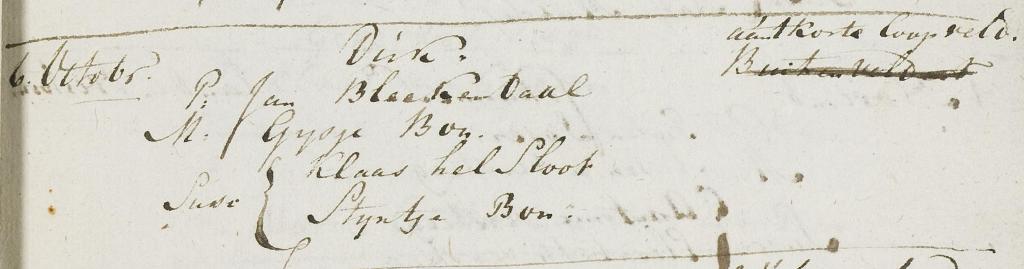 6. Octobr. Dirk. aant korte Loopveld.
Buitenveldert
P. Jan Bleekendaal
M. Gysje Bon.
Klaas hel Sloot
Susc
Styntje Bon.